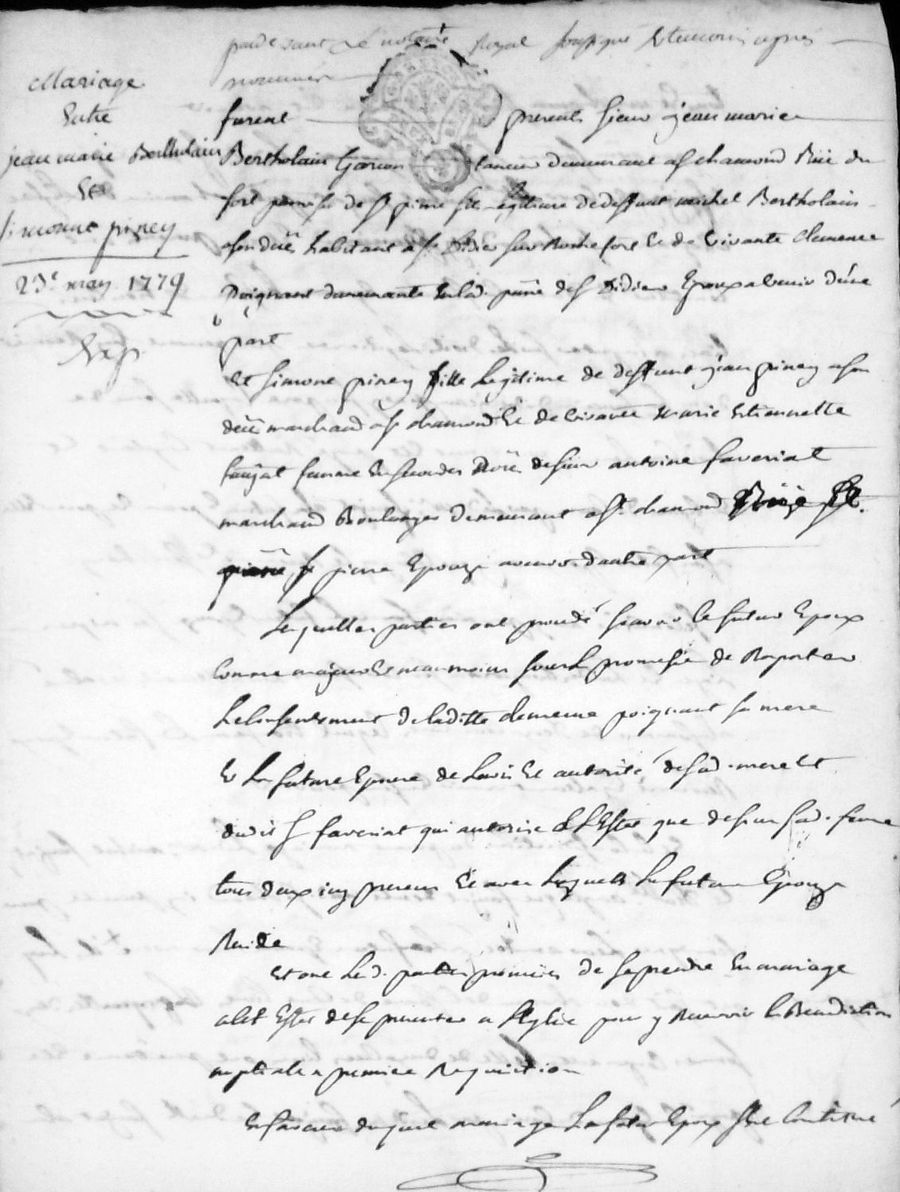 pardevant le notaire Royal soussigné & temoins apres
nommes
Mariage
Entre
jean marie Bertholain
Et
simonne piney
23e may 1779
Exp
furent presents sieur jean marie
Bertholain Garcon taneur demeurant a st chamond Rue du
fort parroisse de st pierre fils legitime de deffunt michel Bertholain
habitant a st Didier sur Rochefort Et de vivante Clemence
Poignant demeurante aud. st Didier Epoux a venir d'une
part
Et Simone piney fille Legitime de deffunt jean piney a son
marchand a st chamond Et de vivante Marie Etiennette
femme En secondes de sieur antoine faveriat
marchand Boulanger demeurant a st chamond
st pierre Epouze avenir d'autre part
Lesquelles parties ont procedé scavoir le futur Epoux
comme majeur Et neanmoins sous La promesse de Raporter
Le Consentement de laditte clemence poignant sa mere
Et La future Epouze de Lavis Et autorité de sad. mere Et
dudit sr faveriat qui autorise a L'Effet que dessus sad. femme
tous deux icy presens Et avec Lesquels La future Epouze
Reside
Et ont Lesd. parties promis de se prendre En mariage
a cet Effet de se presenter a l'Eglise pour y Recevoir la Benediction
nuptiale a premiere Requisition
En faveur duquel mariage Le futur Epoux se Constitue